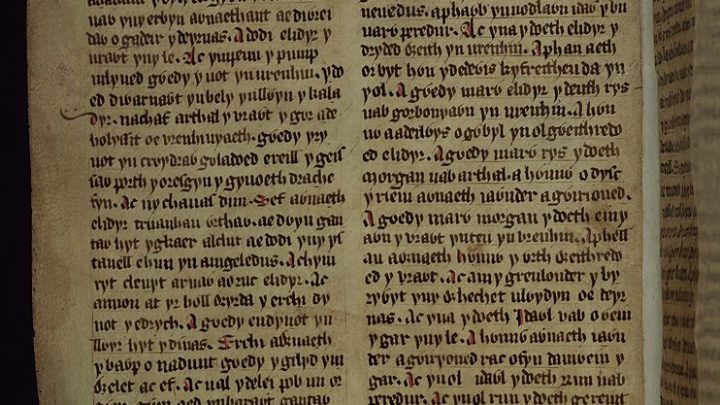 uab ynyerbyn aỽnaethant ae diỽrei
daỽ o gadeir ydeyrnas. Adodi elidyr y
vraỽt ynyle. Ac ynpenn y pump
mlyned gỽedy y uot yn urenhin. ydo
ed diwarnaỽt ynhely ynllỽyn y kala
dyr. nachaf arthal y vraỽt y gỽr ade
holyssit oe vrenhinyaeth. gỽedy yry
uot yn crỽydraỽ gỽladoed ereill y geis
saỽ porth yoresgyn y gyuoeth drache
fyn. Ac ny chauas dim. Sef aỽnaeth
elidyr truanhau ỽrthaỽ. ae dỽyn gan
taỽ hyt ygkaer alclut ae dodi yny ys
tauell ehun yn amgeledus. Achym
ryt cleuyt arnaỽ aoruc elidyr. Ac
anuon at yr holl ỽyrda y erchi dy
uot y edrych. A gỽedy eudyuot yn
llỽyr hyt ydinas. Erchi aỽnaeth
y baỽp o naduunt gỽedy y gilyd ym
ỽelet ac ef. Ac ual ydelei pob un or
neuedus. aphaỽb ynuodlaỽn idaỽ ybu
uarỽ peredur. Ac yna ydoeth elidyr y
dryded ỽeith yn urenhin. Aphan aeth
orbyt hỽn ydeỽis kyfreitheu da yn
y ol. A gỽedy marỽ elidyr y deuth rys
uab gorbonyaỽn yn urenhin. A hỽn
nỽ aadeilỽys o gobyl yn ol gỽeithredo
ed elidyr. A gỽedy marỽ rys y doeth
morgan uab arthal. a hỽnnỽ o dysc
y rieni aỽnaeth iaỽnder a gỽirioned.
A gỽedy marỽ morgan ydoeth einy
aỽn y vraỽt ynteu yn ureuhin. A phell
au aỽnaeth hỽnnỽ y ỽrth ỽeithredo
ed y vraỽt. Ac am y greulonder y by
rỽyt yny ỽhechet ulỽydyn oe deyr
nas. Ac yna ydoeth Idaỽl vab oỽein
y gar yny le. A hỽnnỽ aỽnaeth iaỽn
der a gỽirioned rac ofyn damỽein y
gar. Ac yn ol idaỽl y doeth run uab
peredur. Ac yn ol run y doeth gereint